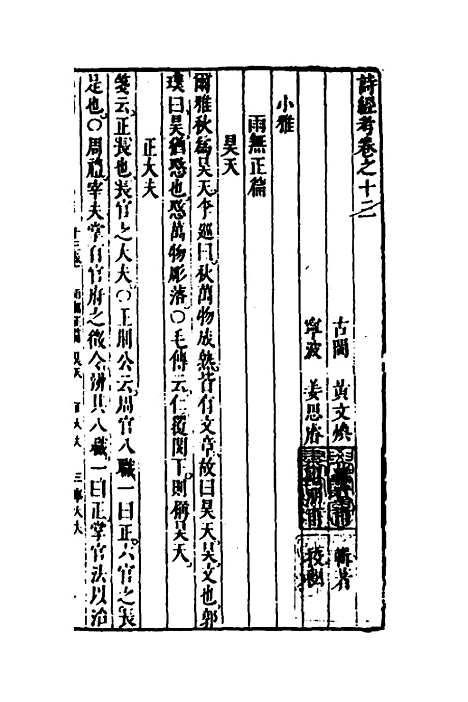 詩經考卷之十二
古閩 黃文煥 輯著
寧波 姜思睿 校

小雅
雨無正篇
昊天
爾雅秋爲旻天李巡曰秋萬物成熟皆有文章故曰旻天旻文也郭
璞曰旻猶愍也愍萬物彫落〇毛傳云仁覆閔下則稱旻天
正大夫
箋云正長也長官之大夫〇王荆公云周官八職一曰正六官之長
是也〇周禮宰夫掌百官府之徵令辨其八職一曰正掌官法以治